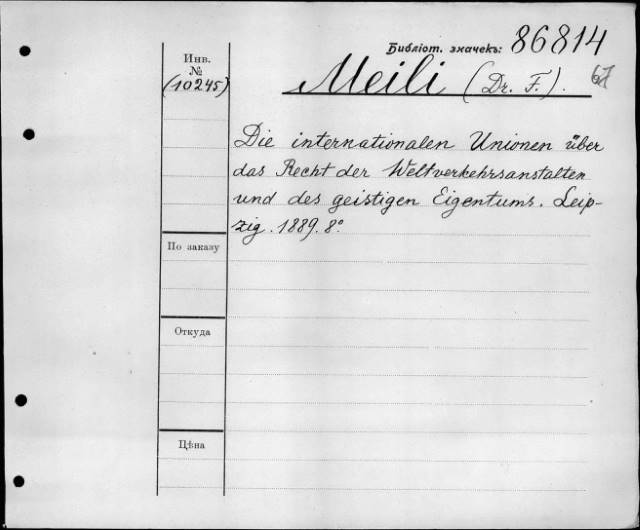 Библіот. значекъ: 86814
Инв.
№
(10245)
Meili (Dr. F.). 67
Die internationalen Unionen über
das Recht der Weltverkehrsanstalten
und des geistigen Eigentums. Leip-
zig. 1889. 8º.
По заказу
Откуда
Цѣна